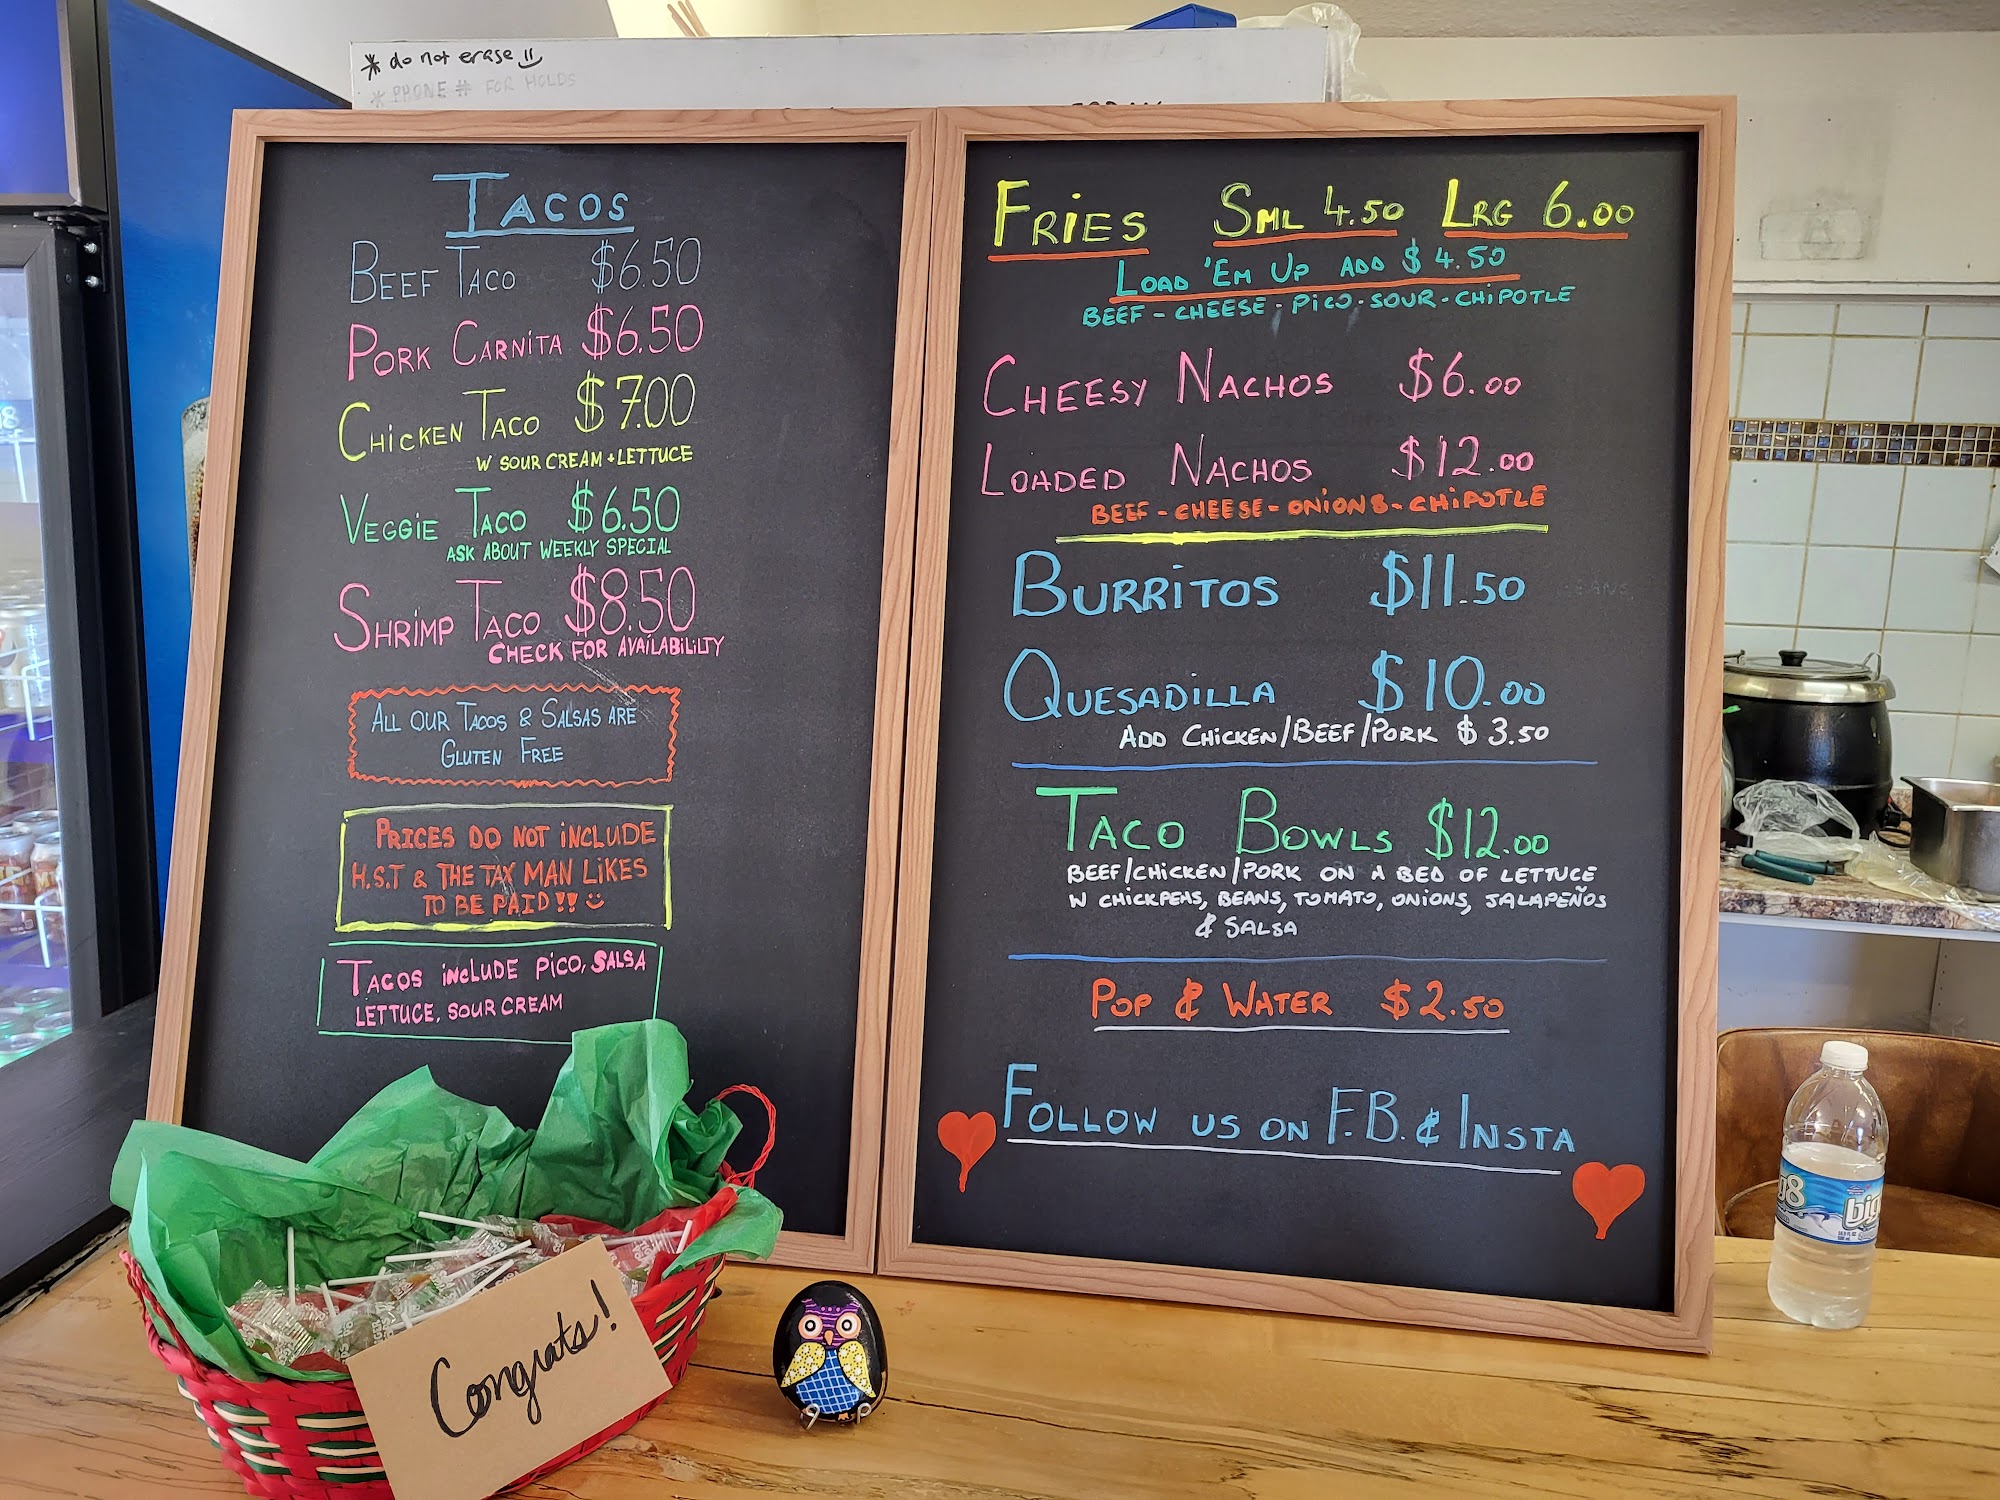 * do not erase
* PHONE # FOR HOLDS
TACOS
BEEF TACO $6.50
PORK CARNITA $6.50
CHICKEN TACO $7.00
W SOUR CREAM + LETTUCE
VEGGIE TACO $6.50
ASK ABOUT WEEKLY SPECIAL
SHRIMP TACO $8.50
CHECK FOR AVAILABILILTY
ALL OUR TACOS & SALSAS ARE
GLUTEN FREE
PRICES DO NOT INCLUDE
H.S.T & THE TAX MAN LIKES
TO BE PAID!!
TACOS INCLUDE PICO, SALSA
LETTUCE, SOUR CREAM
FRIES SML 4.50 LRG 6.00
LOAD 'EM UP ADD $4.50
BEEF - CHEESE - PICO - SOUR - CHIPOTLE
CHEESY NACHOS $6.00
LOADED NACHOS $12.00
BEEF - CHEESE - ONIONS - CHIPOTLE
BURRITOS $11.50
QUESADILLA $10.00
ADD CHICKEN/BEEF/PORK $3.50
TACO BOWLS $12.00
BEEF/CHICKEN/PORK ON A BED OF LETTUCE
W CHICKPEAS, BEANS, TOMATO, ONIONS, JALAPEÑOS
& SALSA
POP & WATER $2.50
FOLLOW US ON F.B. & INSTA
Congrats!
g8 big